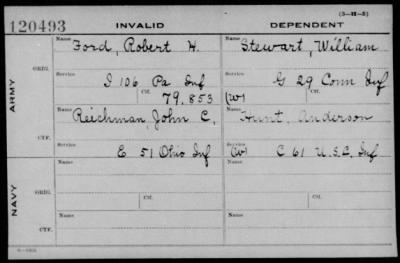 (3-H-5)
120493 INVALID DEPENDENT
Name Ford, Robert H. Name Stewart, William
ORIG.
Service I 106 Pa Inf Service G 29 Conn Inf
Ctf. 79,853 (W) Ctf.
ARMY
Name Reichman, John C. Name Hunt, Anderson
CTF.
Service E 51 Ohio Inf Service (W) C 61 U.S.C. Inf
Name Ctf. Name Ctf.
ORIG.
NAVY
Name Name
CTF.